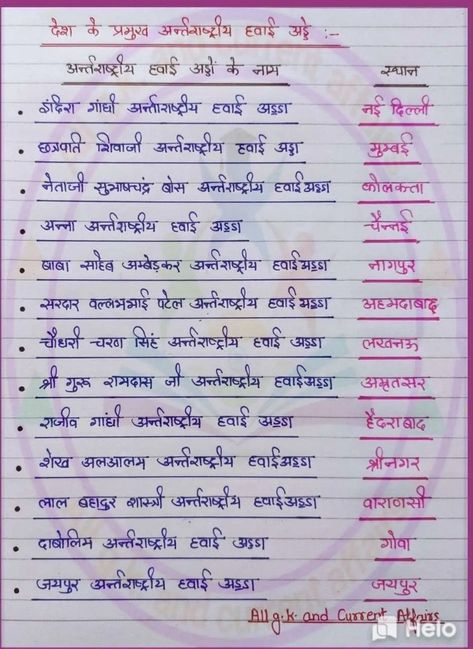 देश के प्रमुख अर्न्तराष्ट्रीय हवाई अड्डे :-
अर्न्तराष्ट्रीय हवाई अड्डों के नाम स्थान
इंदिरा गांधी अर्न्ताराष्ट्रीय हवाई अड्डा नई दिल्ली
छत्रपति शिवाजी अर्न्तराष्ट्रीय हवाई अड्डा मुम्बई
नेताजी सुभाषचंद्र बोस अर्न्तराष्ट्रीय हवाई अड्डा कोलकता
अन्ना अर्न्तराष्ट्रीय हवाई अड्डा चैन्नई
बाबा साहेब अम्बेडकर अर्न्तराष्ट्रीय हवाई अड्डा नागपुर
सरदार वल्लभभाई पटेल अर्न्तराष्ट्रीय हवाई अड्डा अहमदाबाद
चौधरी चरण सिंह अर्न्तराष्ट्रीय हवाई अड्डा लखनऊ
श्री गुरु रामदास जी अर्न्तराष्ट्रीय हवाई अड्डा अमृतसर
राजीव गांधी अर्न्तराष्ट्रीय हवाई अड्डा हैदराबाद
शेख अलआलम अर्न्तराष्ट्रीय हवाई अड्डा श्रीनगर
लाल बहादुर शास्त्री अर्न्तराष्ट्रीय हवाई अड्डा वाराणसी
दाबोलिम अर्न्तराष्ट्रीय हवाई अड्डा गोवा
जयपुर अर्न्तराष्ट्रीय हवाई अड्डा जयपुर
All g.k. and Current Affairs
Helo